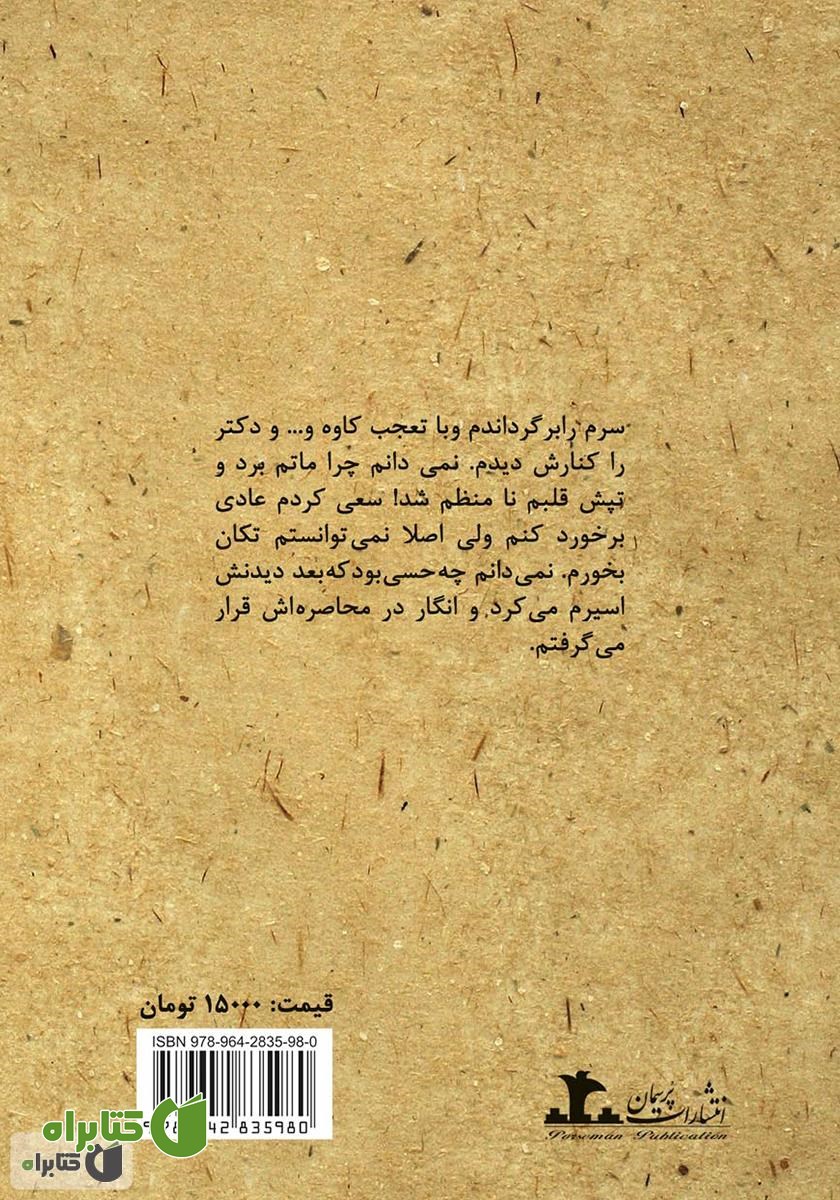 سرم رابرگرداندم وبا تعجب کاوه و... و دکتر
را کنارش دیدم. نمی دانم چرا ماتم برد و
تپش قلبم نا منظم شد! سعی کردم عادی
برخورد کنم ولی اصلا نمی‌توانستم تکان
بخورم. نمی‌دانم چه حسی بود که بعد دیدنش
اسیرم می‌کرد و انگار در محاصره‌اش قرار
می‌گرفتم.
قیمت: ۱۵۰۰۰ تومان
ISBN 978-964-2835-98-0
835980
انتشارات پُرسمان
Porseman Publication
کتابراه
کتابراه